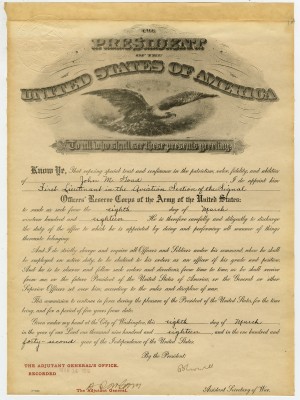 THE
PRESIDENT
OF THE
UNITED STATES OF AMERICA
To all who shall see these presents greeting:
Know Ye, That reposing special trust and confidence in the patriotism, valor, fidelity, and abilities
of John M. I do appoint him
First Lieutenant in the Aviation Section of the Signal
Officers' Reserve Corps of the Army of the United States:
to rank as such from the eighth day of March
nineteen hundred and eighteen He is therefore carefully and diligently to discharge
the duty of the office to which he is appointed by doing and performing all manner of things
thereunto belonging.
And I do strictly charge and require all Officers and Soldiers under his command when he shall
be employed on active duty to be obedient to his orders as an officer of his grade and position.
And he is to observe and follow such orders and directions from time to time, as he shall receive
from me or the future President of the United States of America, or the General or other
Superior Officers set over him, according to the rules and discipline of war.
This commission to continue in force during the pleasure of the President of the United States, for the time
being, and for a period of five years from date.
Given under my hand at the City of Washington, this eighth day of March
in the year of our Lord one thousand nine hundred and eighteen, and in the one hundred and
forty-second year of the Independence of the United States.
By the President:
THE ADJUTANT GENERAL'S OFFICE,
RECORDED
The Adjutant General.
Assistant Secretary of War.